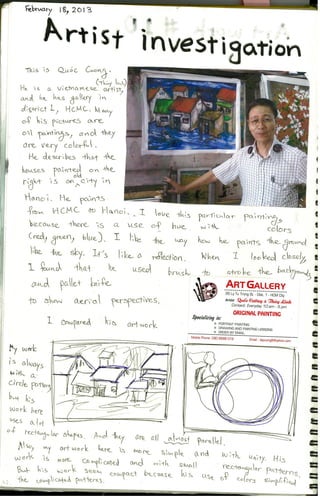 February 18, 2013
Artist investigation
This is Quốc Cuong.
(Thuy Linh)
He is a vietnamese artist,
and he has gallery in
district 1, HCMC. Many
of his pictures are
oil paintings, and they
are very colorful.
He describes that the
houses painted on the
right is an old city in
Hanoi. He paints
from HCMC to Hanoi. I love this particular painting,
because there is a use of hue with colors
(red, green, blue). I like the way how he paints the ground
like the sky. It's like a reflection. When I looked closely,
I found that he used brush to stroke the backgrounds
and pallet knife
to show aerial perspectives.
ART GALLERY
Artist: Quốc Cường & Thùy Linh
ORIGINAL PAINTING
Specializing in:
PORTRAIT PAINTING
DRAWING AND PAINTING LESSONS
ORDER BY EMAIL
I compared his artwork
My work
is always
with a
circle pattern
but his
work here
uses a lot
of rectangular shapes. And they are all almost parallel.
Also, my artwork here is more simple and with unity. His
work is more complicated and with small rectangular patterns.
But his work seem compact because his use of colors simplified
the complicated patterns.